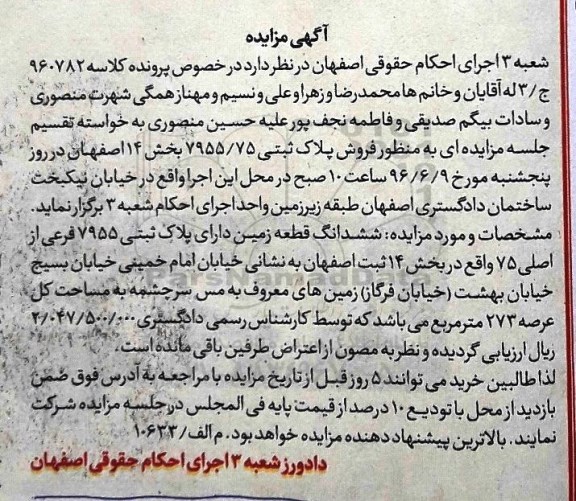 آگهی مزایده
شعبه ۳ اجرای احکام حقوقی اصفهان در نظر دارد در خصوص پرونده کلاسه ۹۶۰۷۸۲
ج/۳ له آقایان و خانم ها محمدرضا و زهرا و علی و نسیم و مهناز همگی شهرت منصوری
و سادات بیگم صدیقی و فاطمه نجف پور علیه حسین منصوری به خواسته تقسیم
جلسه مزایده ای به منظور فروش پلاک ثبتی ۷۹۵۵/۷۵ بخش ۱۴ اصفهان در روز
پنجشنبه مورخ ۹۶/۶/۹ ساعت ۱۰ صبح در محل این اجرا واقع در خیابان نیکبخت
ساختمان دادگستری اصفهان طبقه زیرزمین واحد اجرای احکام شعبه ۳ برگزار نماید.
مشخصات و مورد مزایده: ششدانگ قطعه زمین دارای پلاک ثبتی ۷۹۵۵ فرعی از
اصلی ۷۵ واقع در بخش ۱۴ ثبت اصفهان به نشانی خیابان امام خمینی خیابان بسیج
خیابان بهشت (خیابان فرگاز) زمین های معروف به مس سرچشمه به مساحت کل
عرصه ۲۷۳ مترمربع می باشد که توسط کارشناس رسمی دادگستری ۲/۰۴۷/۵۰۰/۰۰۰
ریال ارزیابی گردیده و نظر به مصون از اعتراض طرفین باقی مانده است.
لذا طالبین خرید می توانند ۵ روز قبل از تاریخ مزایده با مراجعه به آدرس فوق ضمن
بازدید از محل با تودیع ۱۰ درصد از قیمت پایه فی المجلس در جلسه مزایده شرکت
نمایند. بالاترین پیشنهاد دهنده مزایده خواهد بود. م الف/ ۱۰۶۳۳
دادورز شعبه ۳ اجرای احکام حقوقی اصفهان